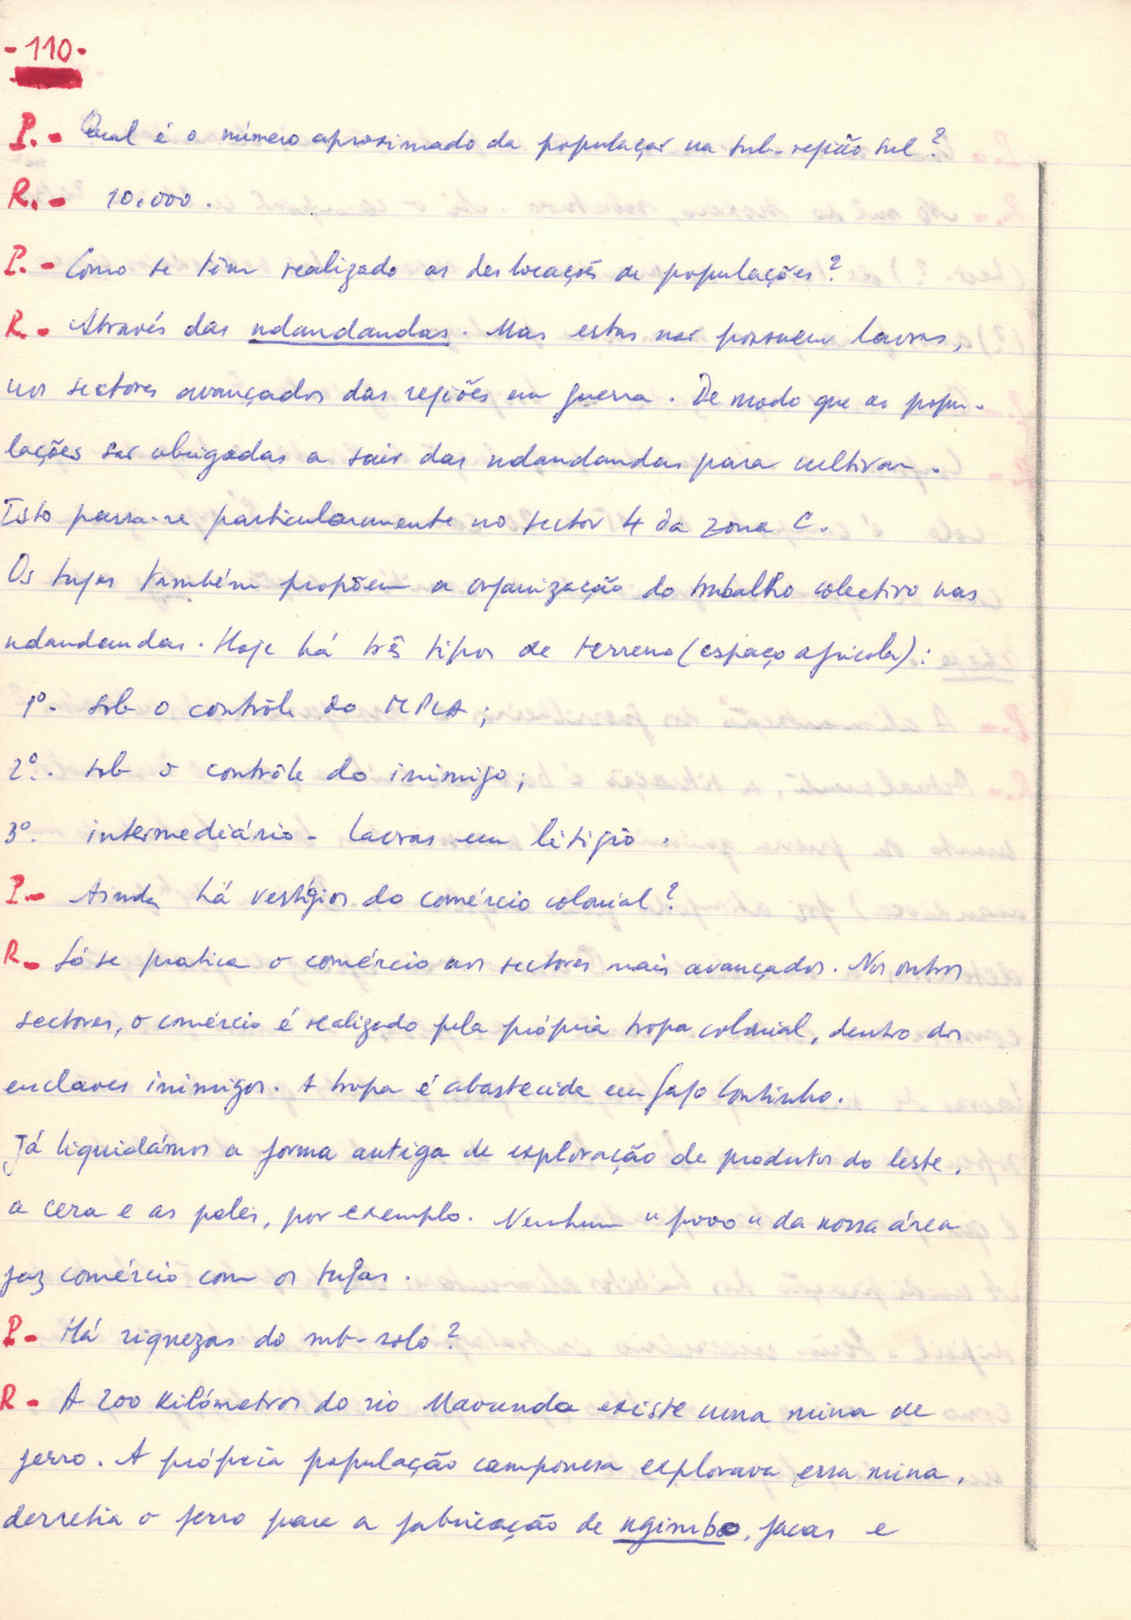 -110-
P.- Qual é o número aproximado da população na sub-região sul?
R.- 10.000.
P.- Como se têm realizado as deslocações de populações?
R.- Através das ndandandas. Mas estas não possuem lavras,
nos sectores avançados das regiões em guerra. De modo que as popu-
lações são obrigadas a sair das ndandandas para cultivar.
Isto passa-se particularmente no sector 4 da zona C.
Os tugas também propõem a organização do trabalho colectivo nas
ndandandas. Hoje há três tipos de terreno (espaço agrícola):
1º. sob o contrôle do MPLA;
2º. sob o contrôle do inimigo;
3º. intermediário - lavras em litígio.
P.- Ainda há vestígios do comércio colonial?
R.- Só se pratica o comércio nos sectores mais avançados. Nos outros
sectores, o comércio é realizado pela própria tropa colonial, dentro dos
enclaves inimigos. A tropa é abastecida em Gago Coutinho.
Já liquidámos a forma antiga de exploração de produtos do leste,
a cera e as peles, por exemplo. Nenhum "povo" da nossa área
faz comércio com os tugas.
P.- Há riquezas do sub-solo?
R.- A 200 kilómetros do rio existe uma mina de
ferro. A própria população camponesa explorava essa mina,
derretia o ferro para a fabricação de ngimbo, facas e